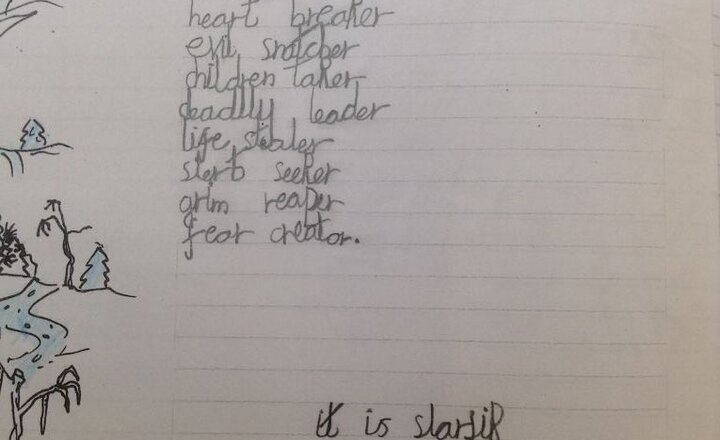 heart breaker
evil snatcher
children taker
deadlly leader
life stealer
seeker
grim reaper
fear creator.
it is